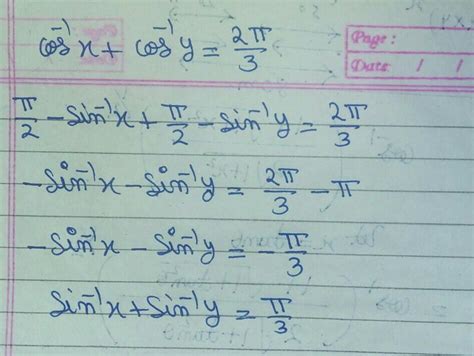 cos⁻¹x + cos⁻¹y = 2π/3
Page :
Date / /
π/2 - sin⁻¹x + π/2 - sin⁻¹y = 2π/3
-sin⁻¹x - sin⁻¹y = 2π/3 - π
-sin⁻¹x - sin⁻¹y = -π/3
sin⁻¹x + sin⁻¹y = π/3